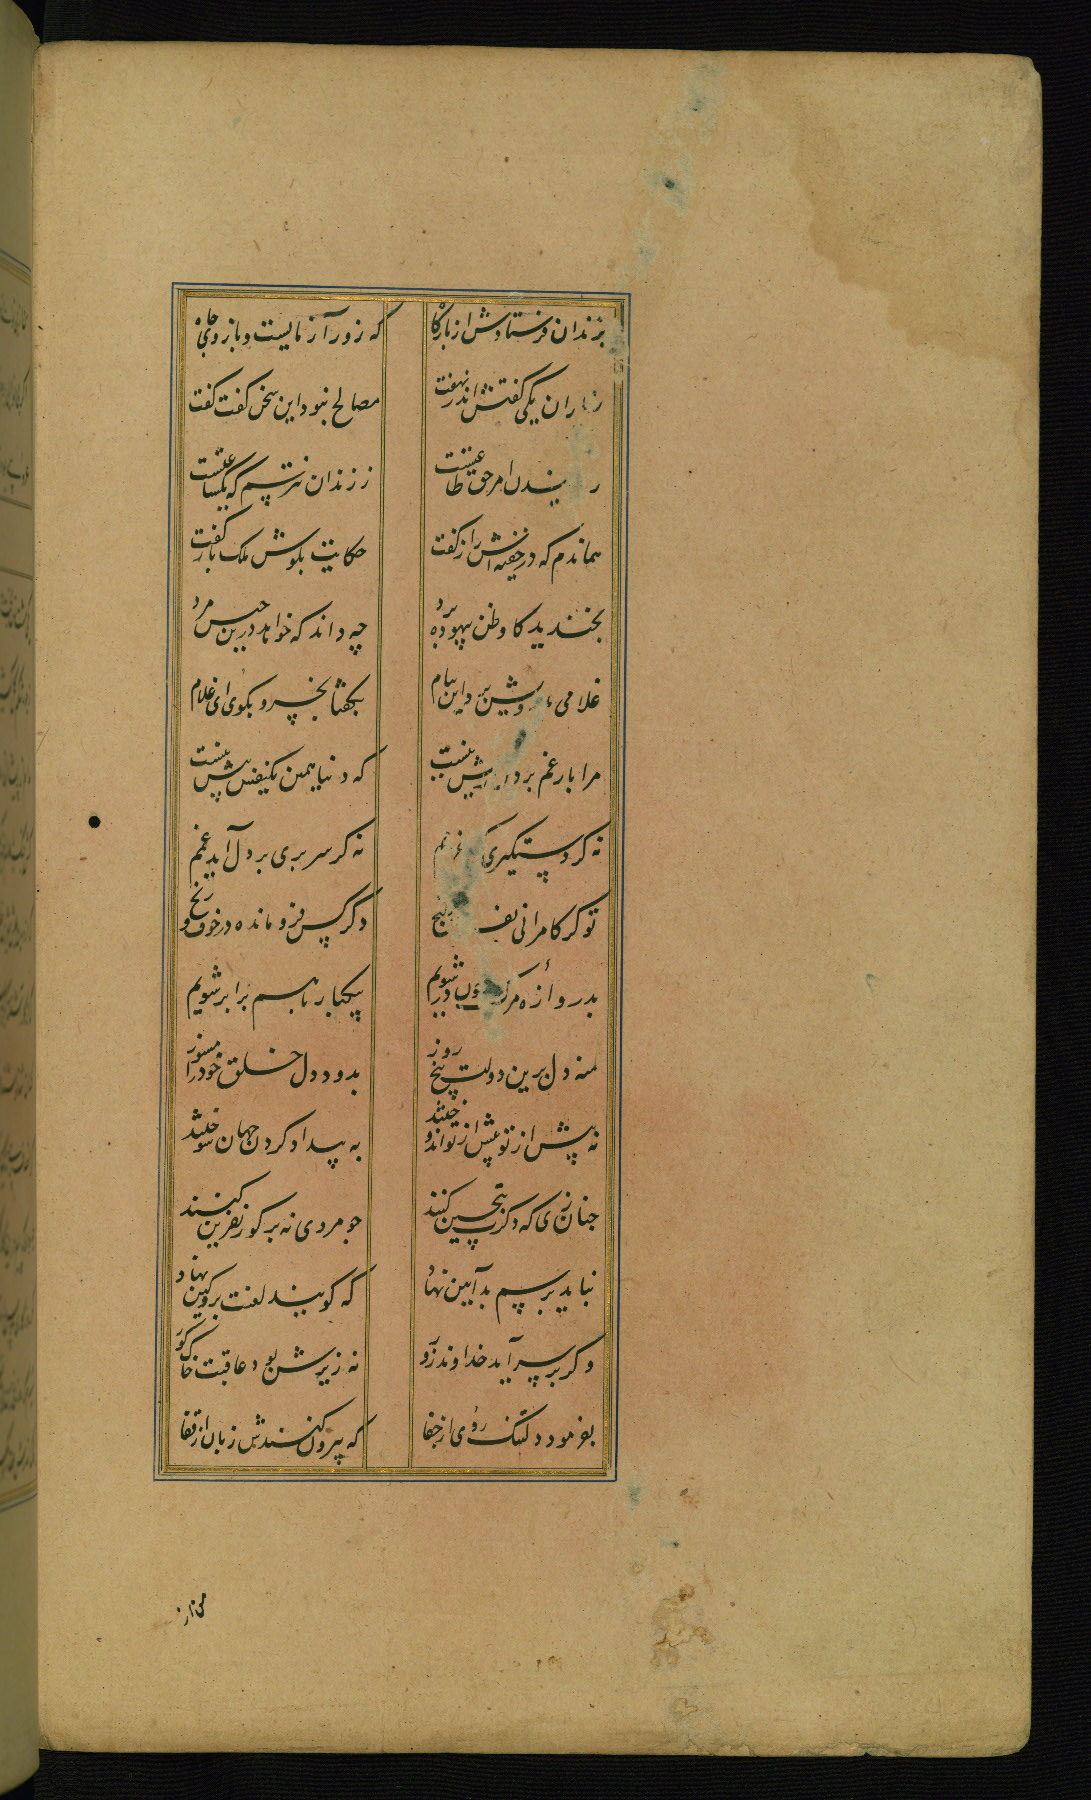 بزندان فرستادش از بارگاه که زورآزمایست و بازوی جاه
یاران یکی گفتش اندر نهفت مصالح نبود این سخن گفت گفت
امر حق طاعتست ز زندان نترسم که یکساعتست
هماندم که در خفیه این راز گفت حکایت بگوش ملک باز گفت
بخندید کاو ظن بیهوده برد چه داند که خواهد درین حبس مرد
غلامی این پیام بگفتا بخسرو بگوی ای غلام
مرا بار غم بر دل ریش نیست که دنیا همین یکنفس بیش نیست
نه گر دستگیری نه گر سر بری بر دل آید غمم
تو گر کامرانی گنج دگر کس فرو مانده در خوف و رنج
بدروازه مرگ چون در شویم بیکبار با هم برابر شویم
منه دل برین دولت پنج روز بدود دل خلق خود را مسوز
نه پیش از تو بیش از تو اندوختند به بیداد کردن جهان سوختند
چنان زی که ذکرت بتحسین کنند چو مردی نه بر گور نفرین کنند
نباید برسم بد آیین نهاد که گویند لعنت برو کین نهاد
و گر بر سر آید خداوند زور نه زیرش بود عاقبت خاک گور
بفرمود دلتنگ روی از جفا که بیرون کنندش زبان از قفا